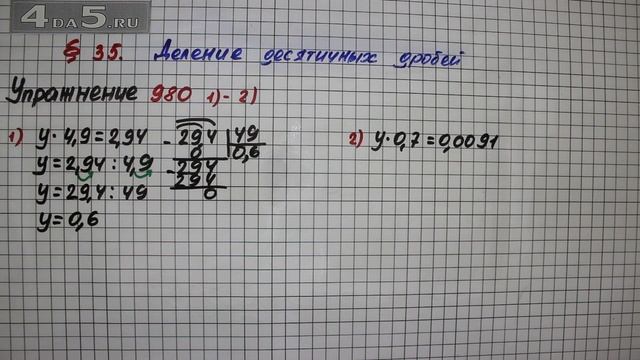 4DA5.RU
§ 35. Деление десятичных дробей
Упражнение 980 1)-2)
1) у·4,9=2,94
у=2,94:4,9
у=29,4:49
у=0,6
- 294 | 49
0 | 0,6
- 294
294
0
2) у·0,7=0,0091